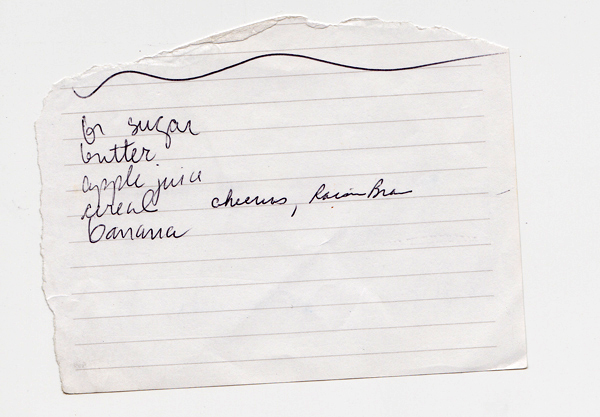 br sugar
butter
apple juice
cereal cheerios, Raisin Bran
banana